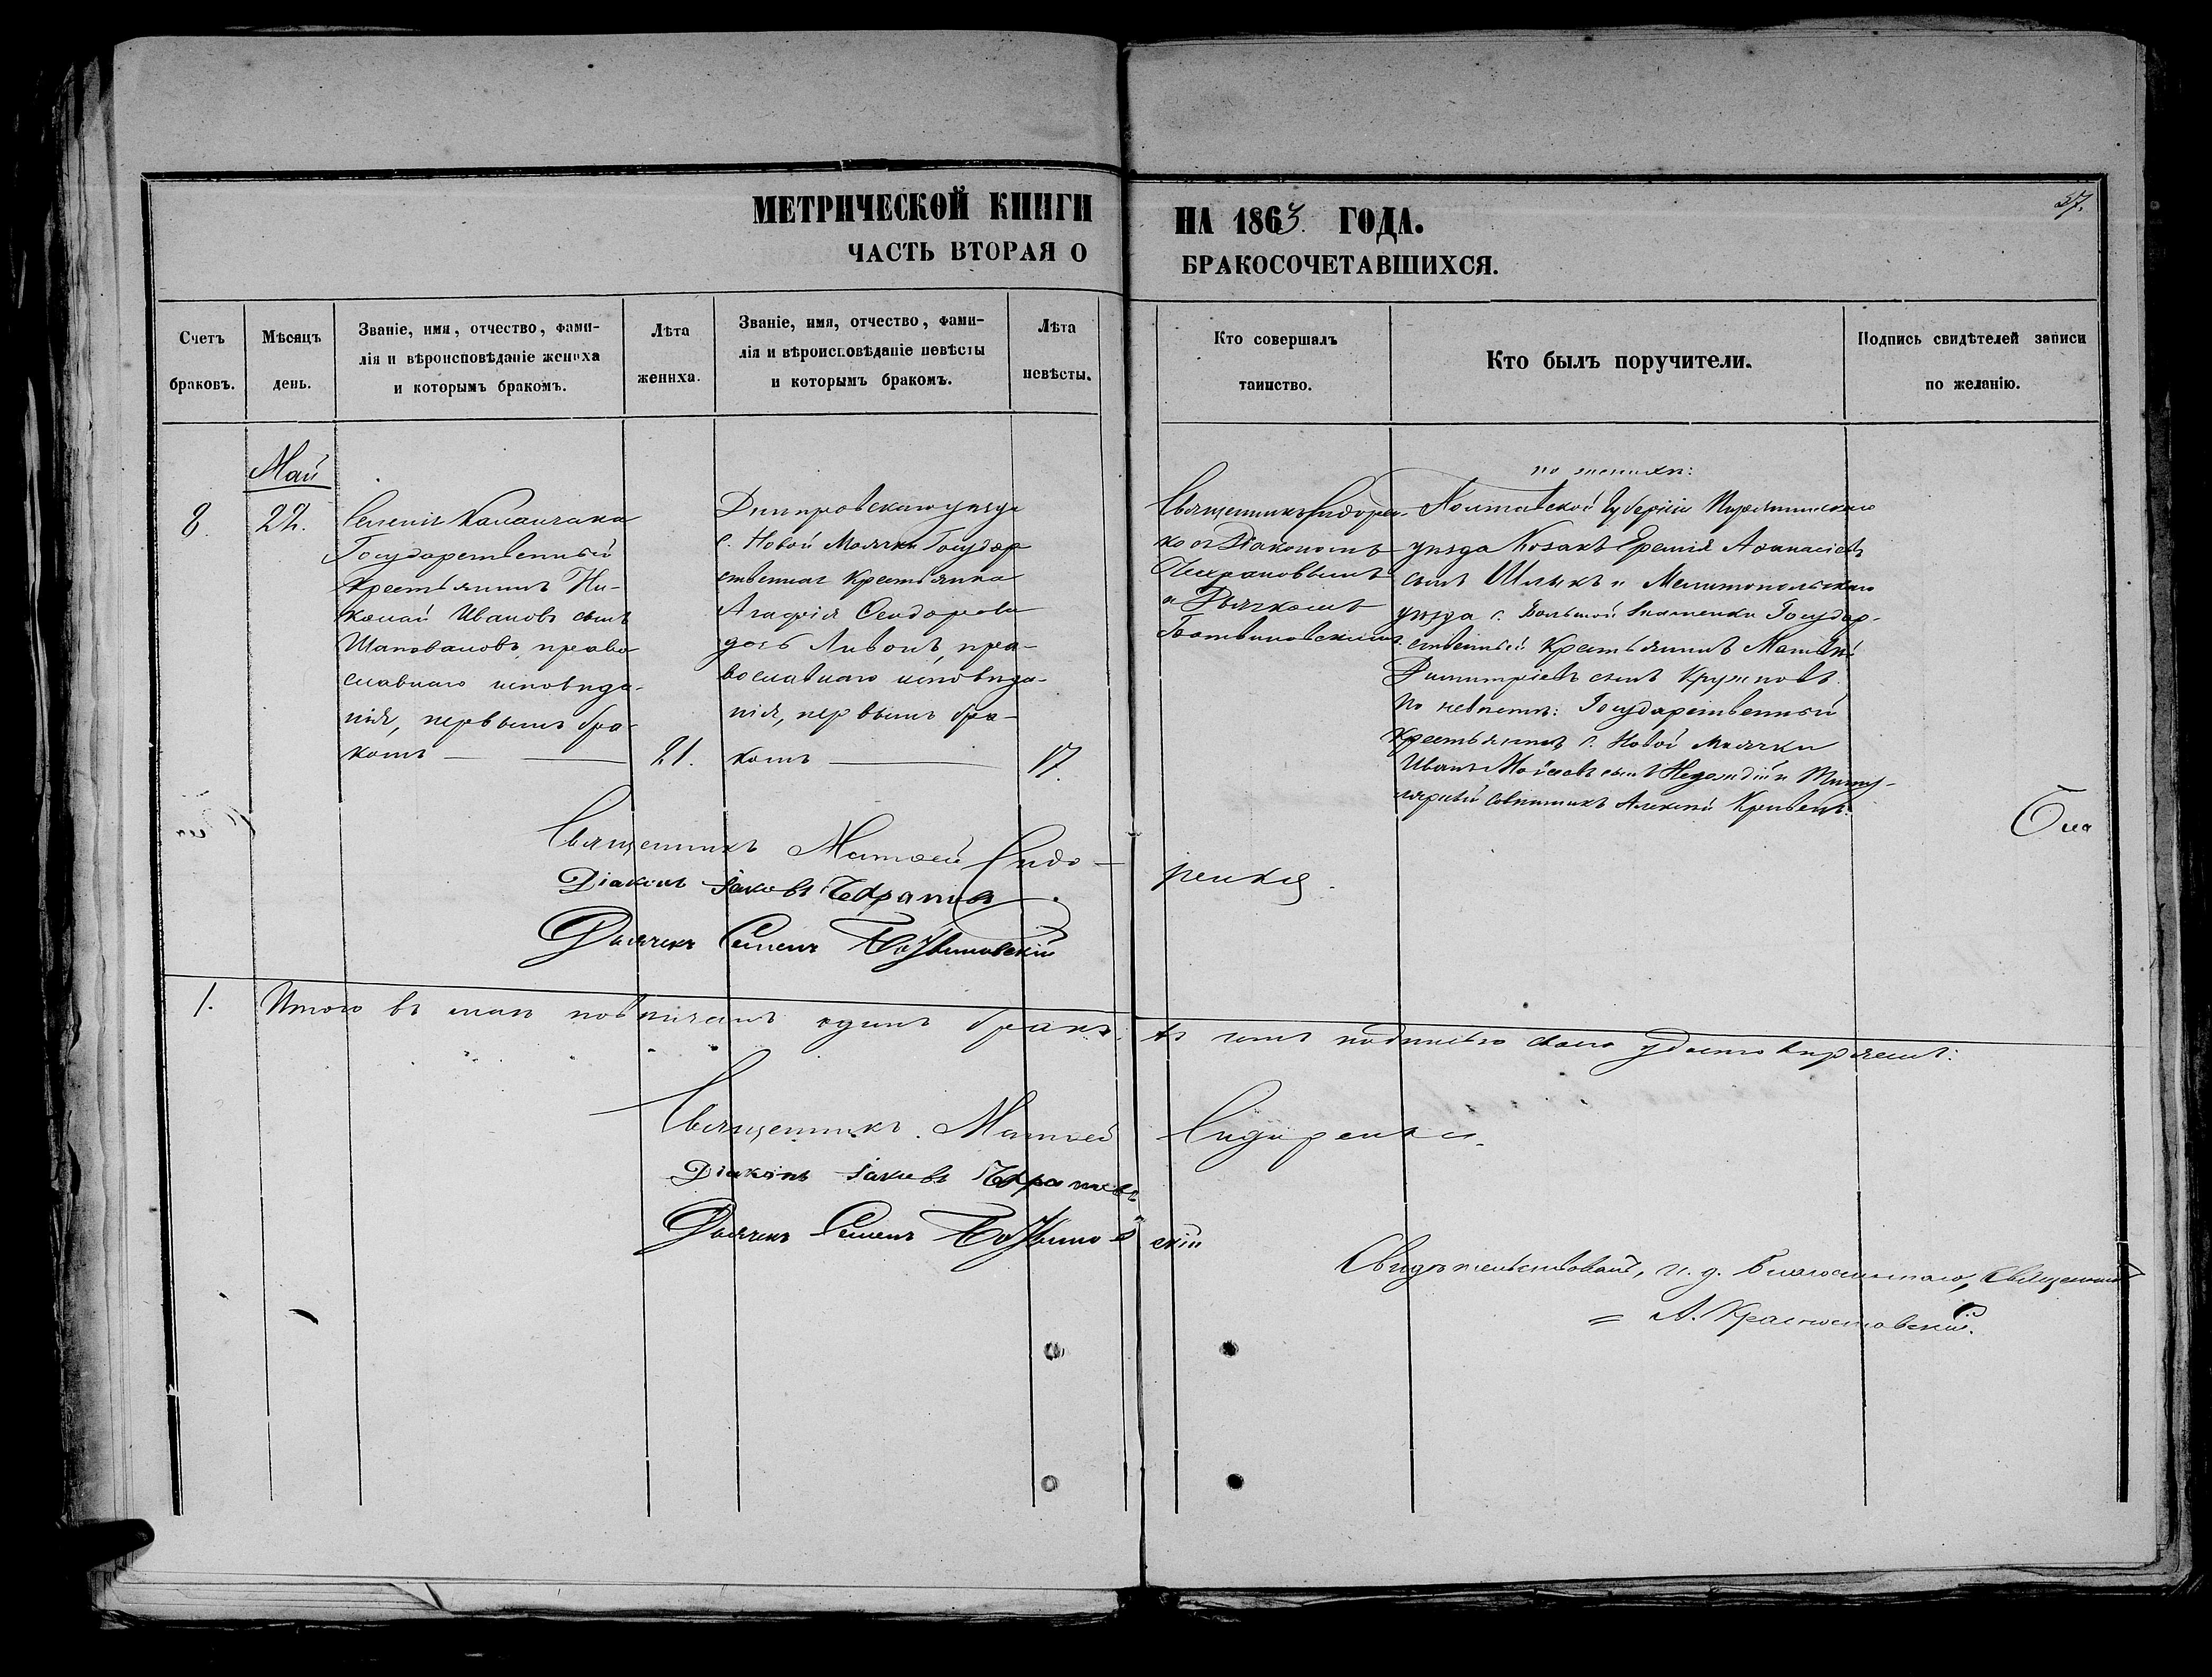 МЕТРИЧЕСКОЙ КНИГИ НА 1863. ГОДА.
37.
ЧАСТЬ ВТОРАЯ О БРАКОСОЧЕТАВШИХСЯ.
Счетъ браковъ.
Мѣсяцъ день.
Званіе, имя, отчество, фами-
лія и вѣроисповѣданіе жениха
и которымъ бракомъ.
Лѣта жениха.
Званіе, имя, отчество, фами-
лія и вѣроисповѣданіе невѣсты
и которымъ бракомъ.
Лѣта невѣсты.
Кто совершалъ
таинство.
Кто былъ поручители.
Подпись свидѣтелей записи
по желанію.
Май
8.
22.
Селенія Каланчака
Государственный
Крестьянинъ Ни-
колай Ивановъ сынъ
Шаповаловъ, право
славнаго исповѣда-
нія, первымъ бра-
комъ
21.
Днепровскаго уѣзда
с. Новой Маячки Государ
ственная Крестьянка
Агафія Сидорова
дочь Ливонъ, пра-
вославнаго исповѣда-
нія, первымъ бра-
комъ
17.
Священникъ Сидорен-
ко съ Діакономъ
и Дьячкомъ
по женихѣ:
Полтавской Губерніи
уѣзда Козакъ Еремій Аѳанасіевъ
сынъ Шлыкъ и Мелитопольскаго
уѣзда с. Большой Знаменки Государ-
ственный Крестьянинъ Матвѣй
Димитріевъ сынъ
По невѣстѣ: Государственный
Крестьянинъ с. Новой Маячки
Иванъ Моисеевъ сынъ и Титу-
лярный Совѣтникъ Алексѣй
Священникъ Матѳей Сидо-
ренко.
Діаконъ Іаковъ
Дьячекъ Семенъ
1. Итого въ маѣ повѣнчанъ одинъ бракъ. Въ чемъ подписью своею удостовѣряемъ:
Священникъ Матѳей Сидоренко.
Діаконъ Іаковъ
Дьячекъ Семенъ
Свидѣтельствовалъ, и. д. Благочиннаго, Священникъ
А.